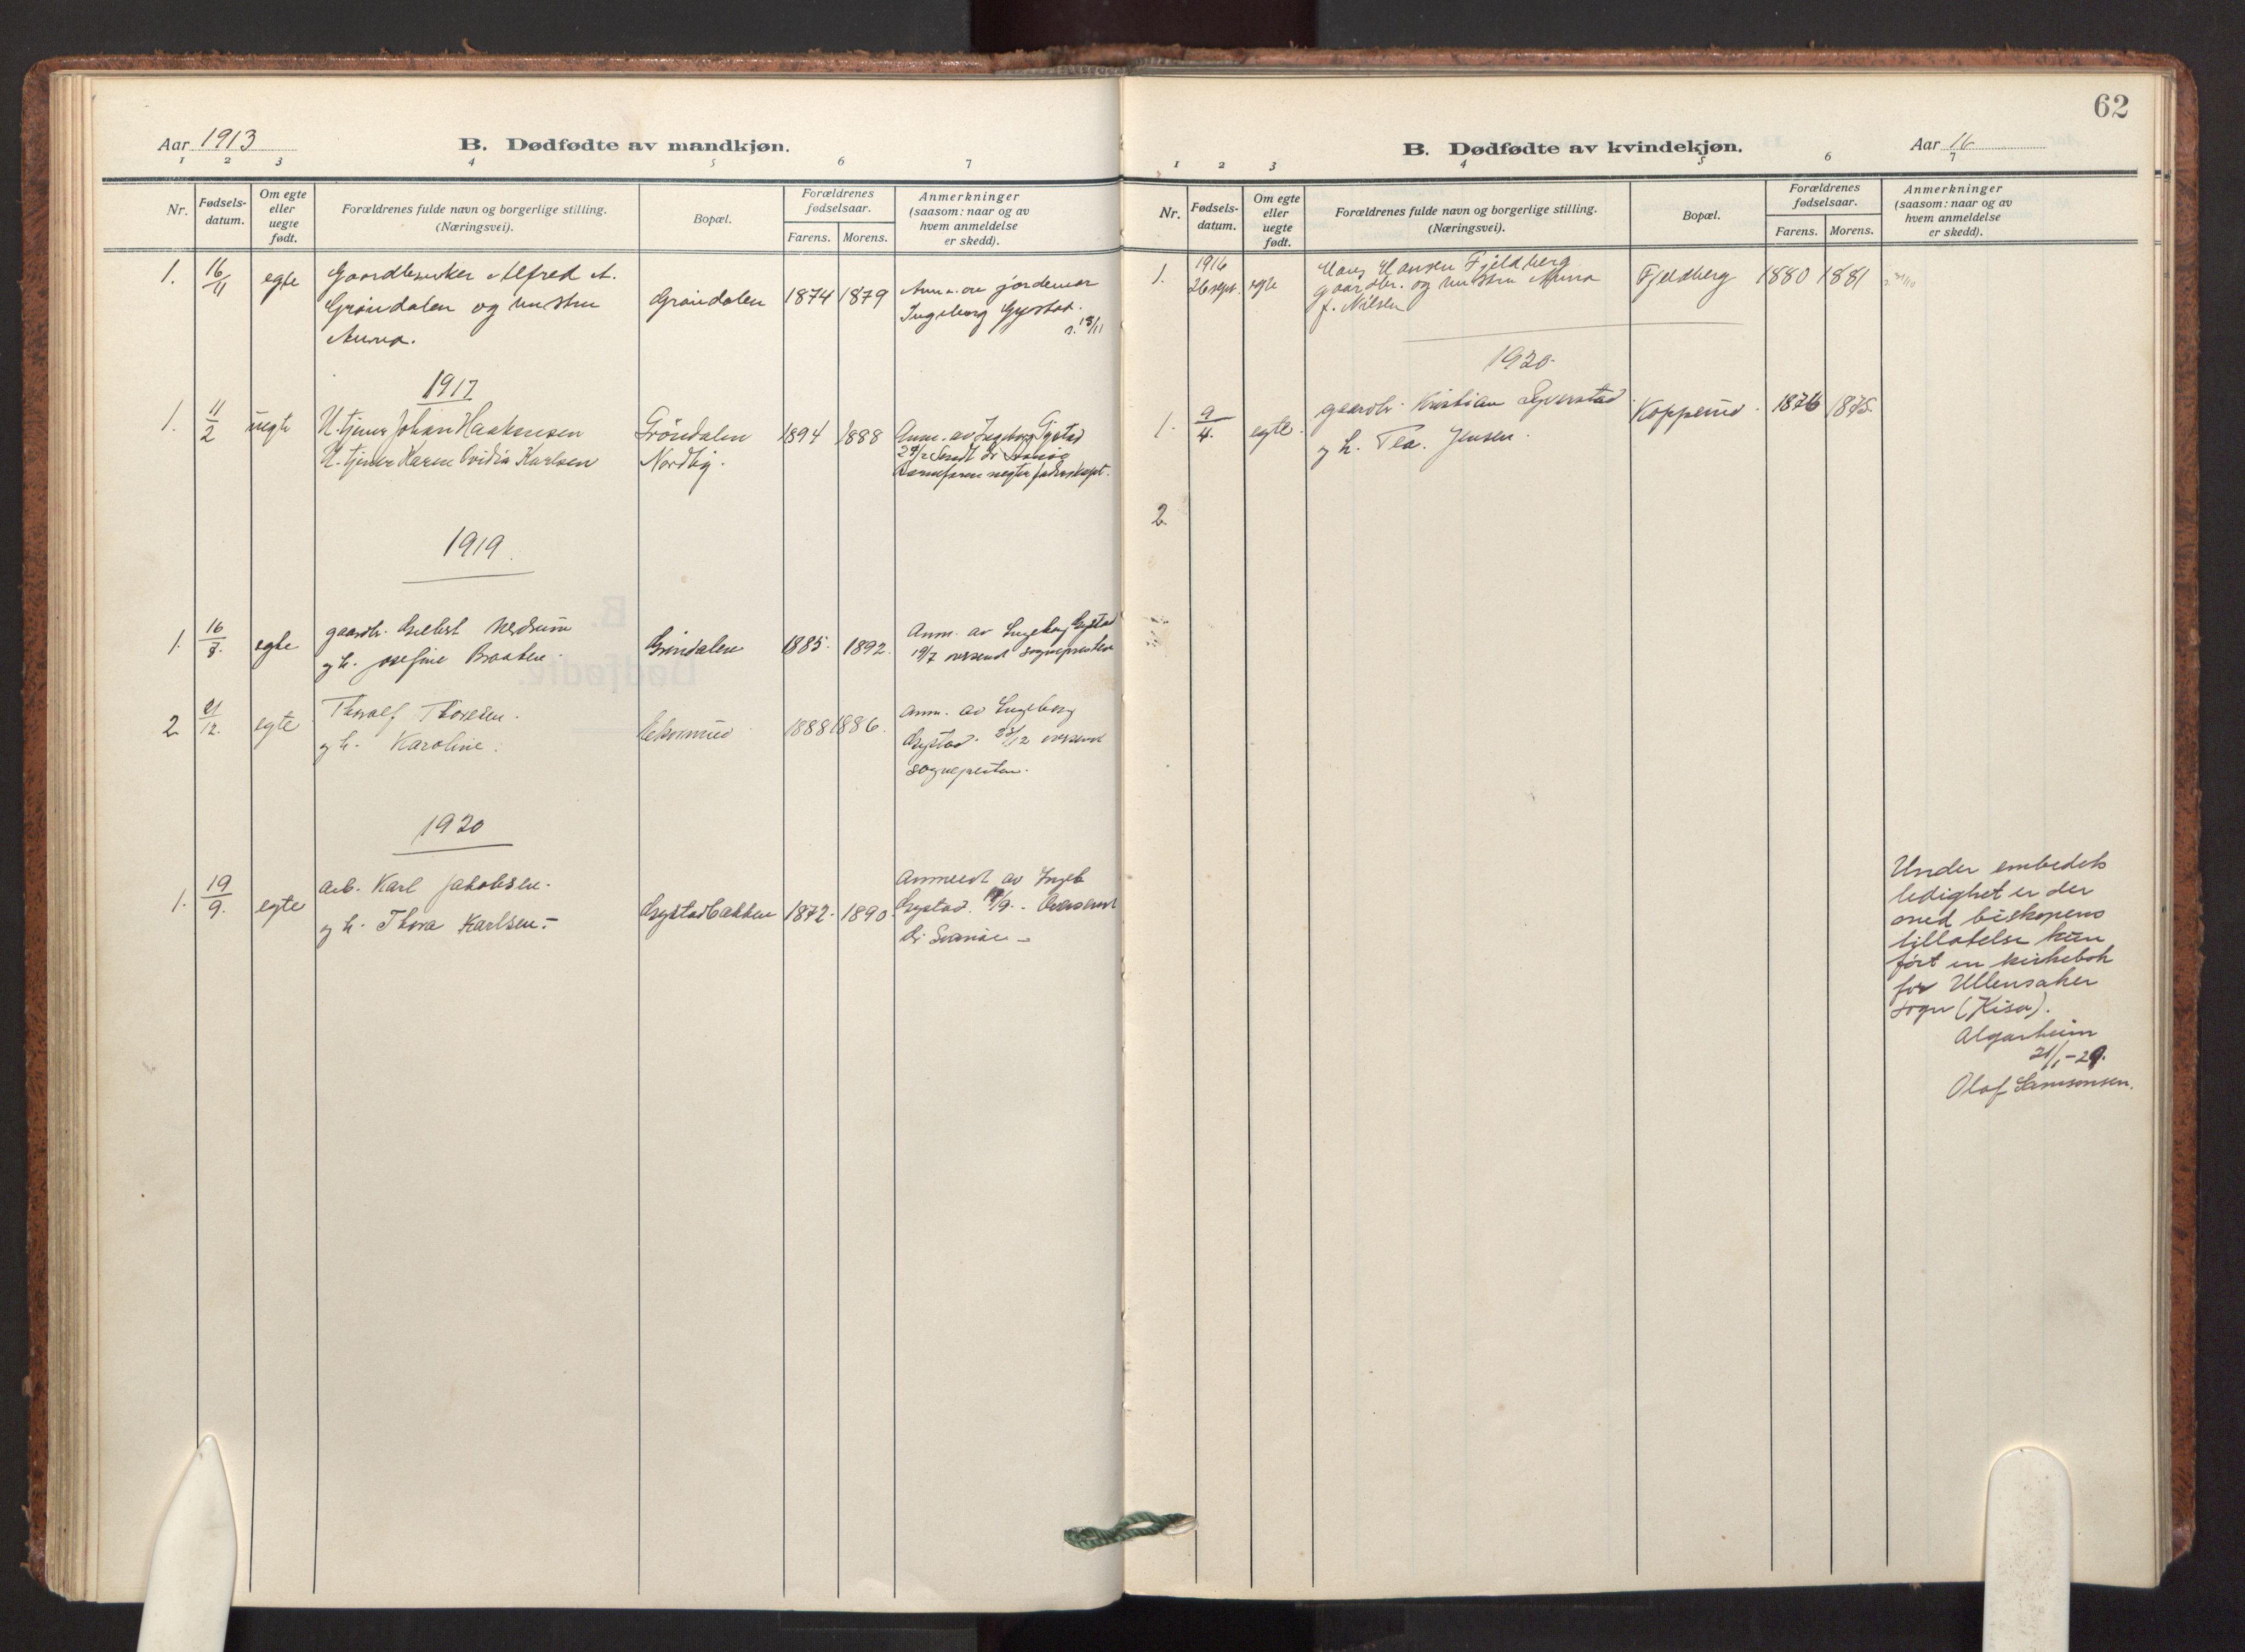 Aar 1913
B. Dødfødte av mandkjøn.
1 2 3 4 5 6 7
Nr.
Fødsels-
datum.
Om egte
eller
uegte
født.
Forældrenes fulde navn og borgerlige stilling.
(Næringsvei).
Bopæl.
Forældrenes
fødselsaar.
Farens. Morens.
Anmerkninger
(saasom: naar og av
hvem anmeldelse
er skedd).
1. 16/11 egte Gaardbruker Alfred A.
Grøndalen og hustru
Anna.
Grøndalen 1874 1879
Anm. av jordemor
Ingeborg Gystad.
18/11
1917
1. 11/2 uegte U. tjener Johan Haakensen
U. tjener Karen Ovidia Karlsen
Grøndalen
Nordby.
1894 1888
Anm. av Ingeborg Gystad
Sendt dr Svanøe
Barnefaren negter faderskapet.
1919
1. 16/7. egte gaardbr. Gilbert Nedrum
og h. Josefine Braaten.
Grøndalen 1885. 1892.
Anm. av Ingeborg Gystad
19/7 oversendt sognepresten
2 21/12. egte Thoralf Thoresen.
og h. Karoline.
1888 1886.
Anm. av Ingeborg
Gystad. 23/12 oversendt
sognepresten.
1920
1. 19/9. egte arb. Karl Jakobsen.
og h. Thora Karlsen.-
Gystadbakken 1872. 1890.
Anmeldt av Ingeb
Gystad. /9. - Oversendt
dr Svanøe -
62
B. Dødfødte av kvindekjøn.
Aar 16
1 2 3 4 5 6 7
Nr.
Fødsels-
datum.
Om egte
eller
uegte
født.
Forældrenes fulde navn og borgerlige stilling.
(Næringsvei).
Bopæl.
Forældrenes
fødselsaar.
Farens. Morens.
Anmerkninger
(saasom: naar og av
hvem anmeldelse
er skedd).
1. 1916
26 sept. egte
Hans Hansen Fjeldberg
gaardbr. og hustru Anna
f. Nilsen
Fjeldberg 1880 1881
1920.
1. 9/4. egte. gaardbr. Kristian
og h. Tea. Jensen.
Kopperud. 1876 1875.
2
Under embedets
ledighet er der
med biskopens
tillatelse kun
ført en kirkebok
for Ullensaker
sogn (Kisa).
Algarheim
21/1-29.
Olaf Samsonsen.